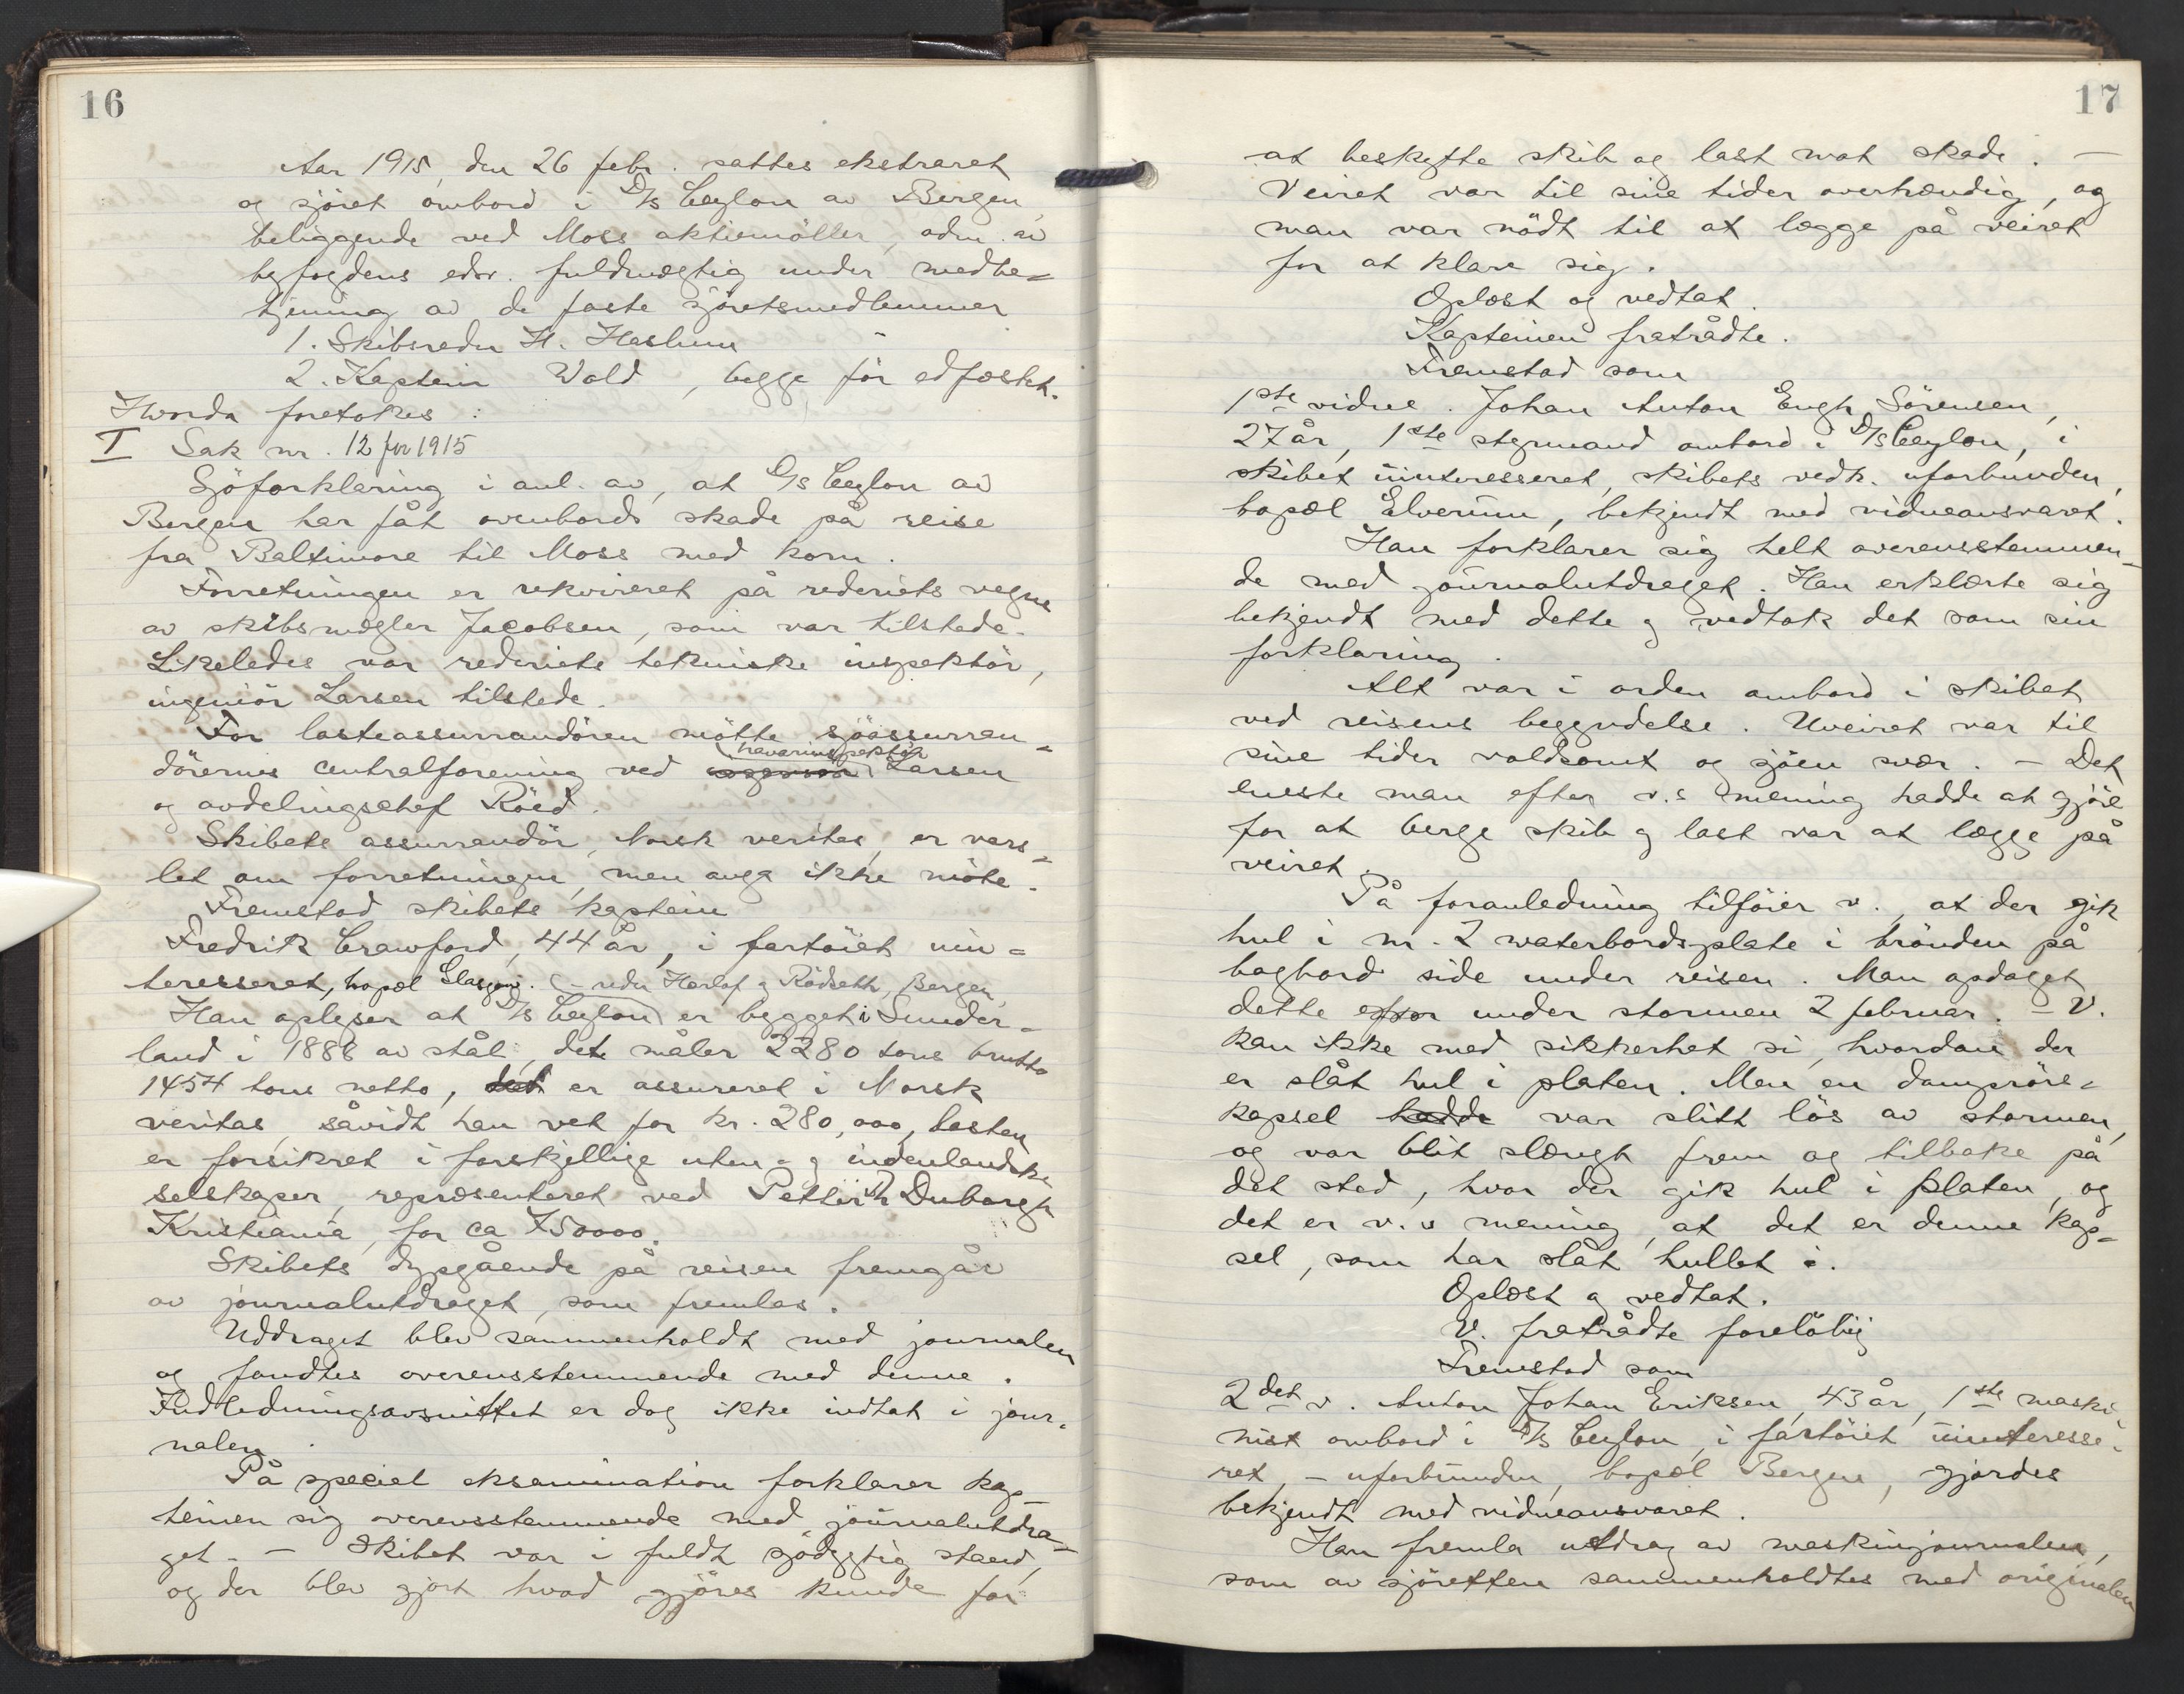 16
Aar 1915, den 26 febr. sattes ekstraret
og sjöret ombord i D/s Ceylon av Bergen,
beliggende ved Moss aktiemöller, adm. av
byfogdens edsv. fuldmægtig under medbe-
tjening av de faste sjöretsmedlemmer
1. Skibsreder H. Haslum
2. Kaptein Wold, begge för edfæstet.
Hvorda foretokes:
I Sak nr. 12 for 1915
Sjöforklaring i anl. av, at D/s Ceylon av
Bergen har fåt ovenbords skade på reise
fra Baltimore til Moss med korn.
Forretningen er rekvireret på rederiets vegne
av skibsmægler Jacobsen, som var tilstede.
Likeledes var rederiets tekniske inspektör,
ingeniör Larsen tilstede.
For lasteassurandören mötte sjöassuran-
havariinspektör
dörernes centralforening ved ingeniör Larsen
og avdelingschef Röed.
Skibets assurandör, Norsk veritas, er vars-
let om forretningen, men anga ikke möte.
Fremstod skibets kaptein
Fredrik Crawford, 44 år, i fartöiet uin-
teresseret, bopæl Glasgow. (- reder Harlof g Rödseth, Bergen,
Han oplyser at D/s Ceylon er bygget i Sunder-
land i 1888 av stål, det måler 2280 tons brutto
1454 tons netto, det er assureret i Norsk
veritas, såvidt han vet for kr. 280,000, lasten
er forsikret i forskjellige uten- g indenlandske
selskaper, repræsenteret ved Duborgh
Kristiania, for ca 750000.
Skibets dypgående på reisen fremgår
av journalutdraget, som fremlas.
Uddraget blev sammenholdt med journalen
og fandtes overensstemmende med denne.
Indledningsavsnittet er dog ikke indtat i jour-
nalen.
På speciel eksamination forklarer kap-
teinen sig overensstemmende med journalutdra-
get. - Skibet var i fuldt sjödygtig stand,
og der blev gjort hvad gjöres kunde for
17
at beskytte skib og last mot skade. -
Veiret var til sine tider overhændig, og
man var nödt til at lægge på veiret
for at klare sig.
Oplæst og vedtat.
Kapteinen fratrådte.
Fremstod som
1ste vidne. Johan Anton Engh Sörensen,
27 år, 1ste styrmand ombord i D/s Ceylon, i
skibet uinteresseret, skibets vedk. uforbunden,
bopæl Elverum, bekjendt med vidneansvaret.
Han forklarer sig helt overensstemmen-
de med journalutdraget. Han erklærte sig
bekjendt med dette g vedtok det som sin
forklaring.
Alt var i orden ombord i skibet
ved reisens begyndelse. Uveiret var til
sine tider voldsomt og sjöen svær. - Det
eneste man efter v.s mening hadde at gjöre
for at berge skib g last var at lægge på
veiret.
På foranledning tilföier v., at der gik
hul i nr. 2 waterbordsplate i brönden på
bagbord side under reisen. Man opdaget
dette efter under stormen 2 februar. - V.
kan ikke med sikkerhet si, hvordan der
er slåt hul i platen. Men en damprörs-
kapsel hadde var slitt lös av stormen,
og var blit slængt frem og tilbake på
det sted, hvor der gik hul i platen, og
det er v.s mening, at det er denne kap-
sel, som har slåt hullet i.
Oplæst g vedtat.
V. fratrådte forelöbig
Fremstod som
2det v. Anton Johan Eriksen, 43 år, 1ste maski-
nist ombord i D/s Ceylon, i fartöiet uinteresse-
ret, - uforbunden, bopæl Bergen, gjordes
bekjendt med vidneansvaret.
Han fremla utdrag av maskinjournalen,
som av sjöretten sammenholdtes med originalen